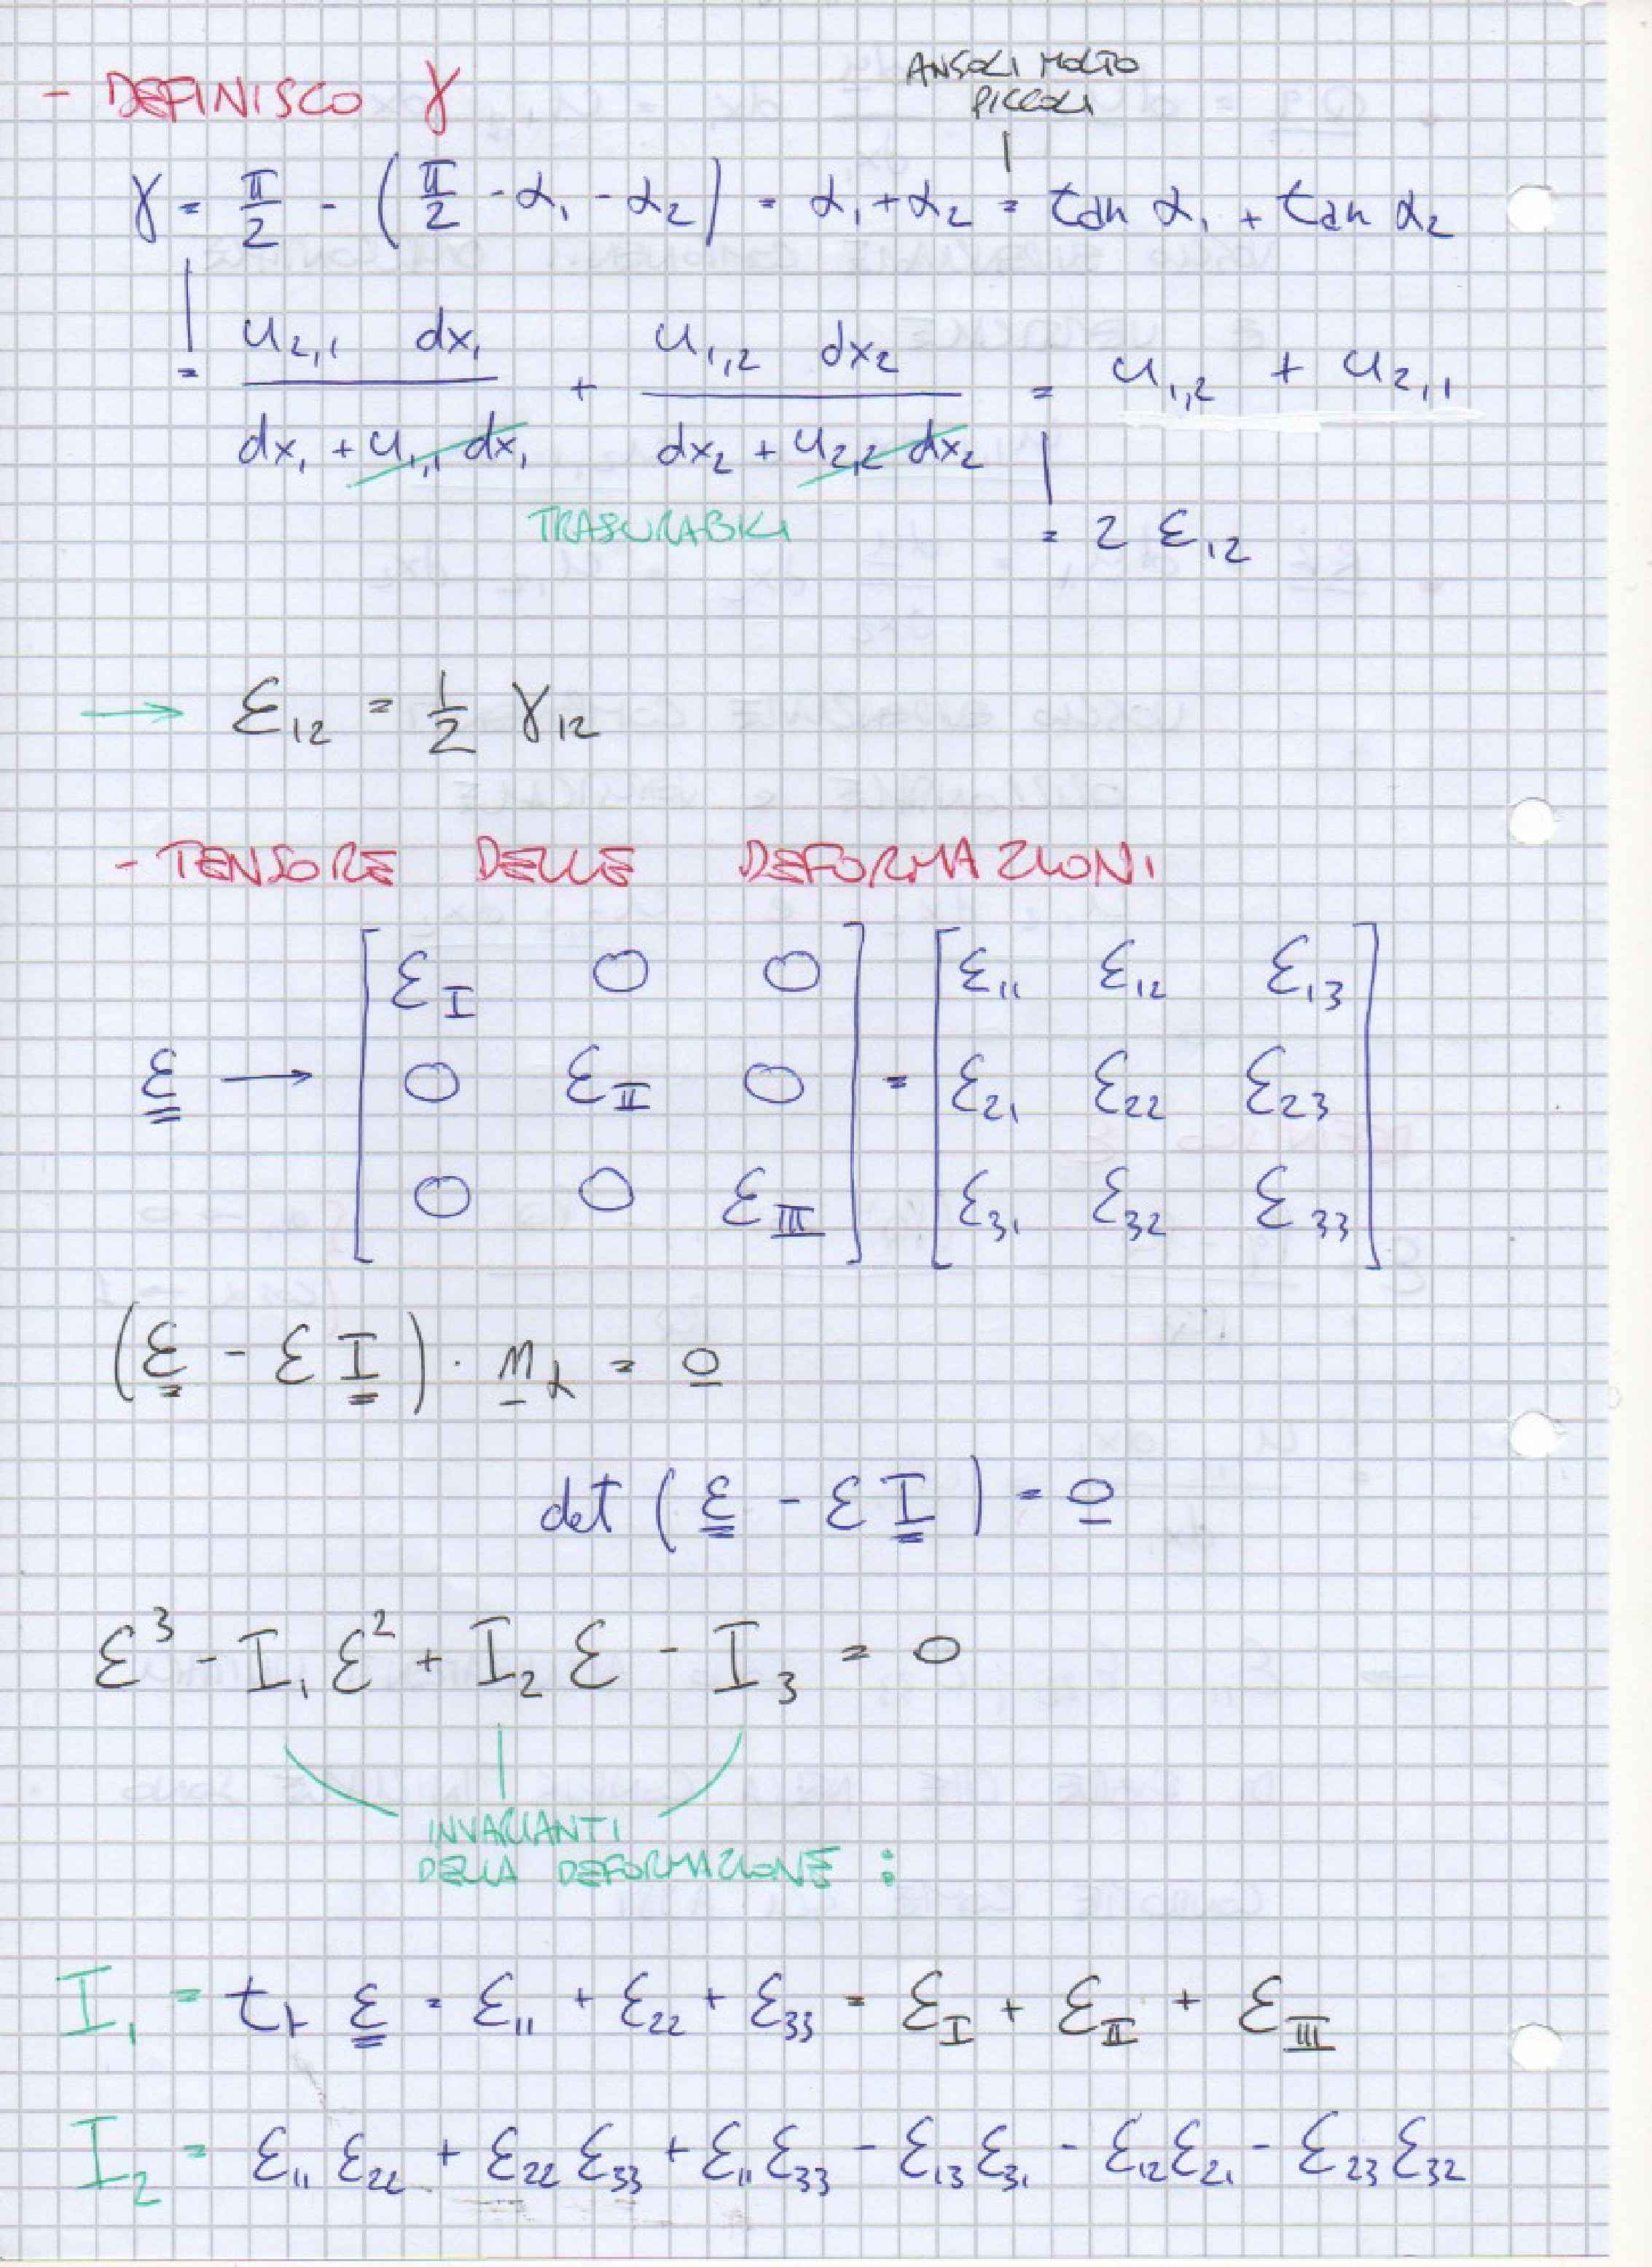 - DEFINISCO γ
ANGOLI MOLTO
PICCOLI
γ = π/2 - (π/2 - α₁ - α₂) = α₁ + α₂ = tan α₁ + tan α₂
= u₂,₁ dx₁ / (dx₁ + u₁,₁ dx₁) + u₁,₂ dx₂ / (dx₂ + u₂,₂ dx₂) = u₁,₂ + u₂,₁
TRASCURABILI
= 2 ε₁₂
→ ε₁₂ = 1/2 γ₁₂
- TENSORE DELLE DEFORMAZIONI
[ε_I 0 0] [ε₁₁ ε₁₂ ε₁₃]
ε → [0 ε_II 0] = [ε₂₁ ε₂₂ ε₂₃]
[0 0 ε_III] [ε₃₁ ε₃₂ ε₃₃]
(ε - ε I) · n_α = 0
det (ε - ε I) = 0
ε³ - I₁ ε² + I₂ ε - I₃ = 0
INVARIANTI
DELLA DEFORMAZIONE :
I₁ = tr ε = ε₁₁ + ε₂₂ + ε₃₃ = ε_I + ε_II + ε_III
I₂ = ε₁₁ ε₂₂ + ε₂₂ ε₃₃ + ε₁₁ ε₃₃ - ε₁₃ ε₃₁ - ε₁₂ ε₂₁ - ε₂₃ ε₃₂